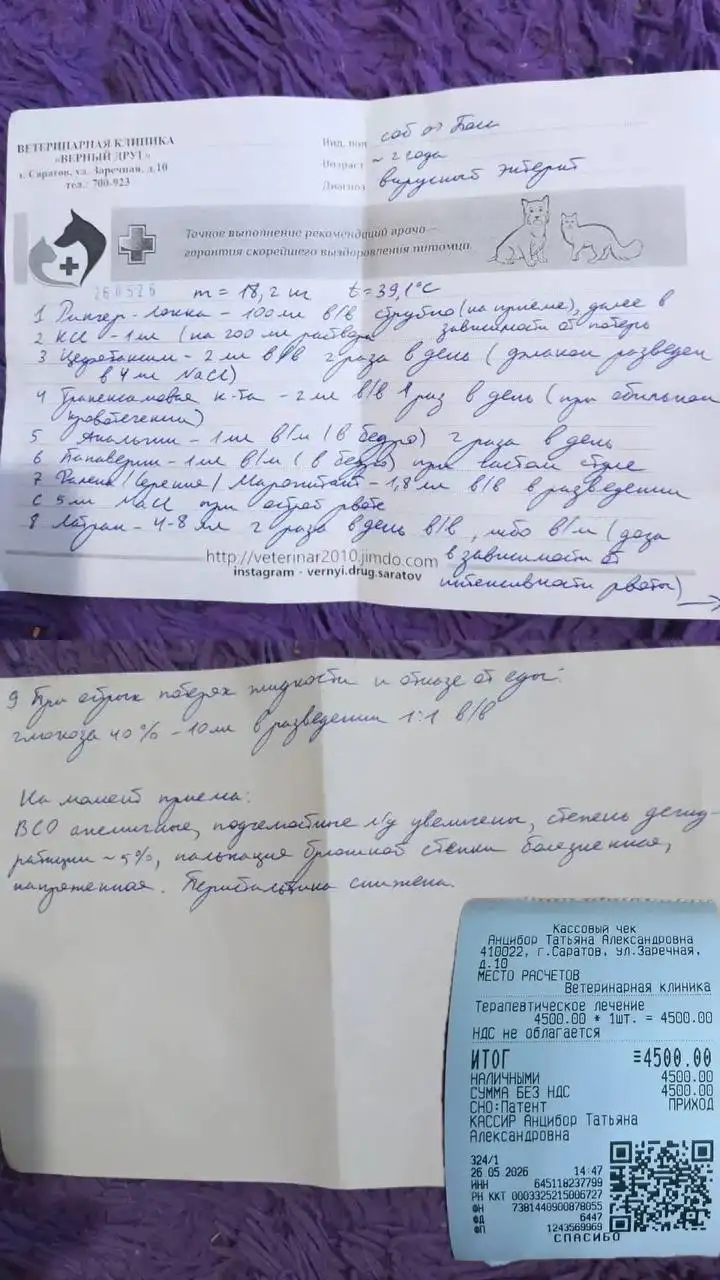 ВЕТЕРИНАРНАЯ КЛИНИКА
«ВЕРНЫЙ ДРУГ»
г. Саратов, ул. Заречная, д.10
тел.: 700-923
Вид, соб
Возраст ~ 2 года
Диагноз вирусный энтерит
Точное выполнение рекомендаций врача –
гарантия скорейшего выздоровления питомца.
260526 m = 18,2 кг t = 39,1°C
1 Рингер-Локка – 100 мл в/в струйно (на приеме), далее в
зависимости от потерь
2 KCl – 1 мл (на 200 мл раствора
3 Цефотаксим – 2 мл в/в 2 раза в день (флакон разведен
в 4 мл NaCl)
4 Транексамовая к-та – 2 мл в/в 1 раз в день (при обильном
кровотечении)
5 Анальгин – 1 мл в/м (в бедро) 2 раза в день
6 Папаверин – 1 мл в/м (в бедро) при частом стуле
7 / Серения / Маропитант – 1,8 мл в/в в разведении
с 5 мл NaCl при острой рвоте
8 Латран – 4-8 мл 2 раза в день в/в, либо в/м (доза
в зависимости от
интенсивности рвоты) →
http://veterinar2010.jimdo.com
instagram - vernyi.drug.saratov
9 При острых потерях жидкости и отказе от еды:
глюкоза 40% – 10 мл в разведении 1:1 в/в
На момент приема:
ВСО анемичные, подчелюстные л/у увеличены, степень дегид-
ратации ~5%, пальпация брюшной стенки болезненная,
напряженная. Перистальтика снижена.
Кассовый чек
Анцибор Татьяна Александровна
410022, г.Саратов, ул.Заречная,
д.10
МЕСТО РАСЧЕТОВ
Ветеринарная клиника
Терапевтическое лечение
4500.00 * 1шт. = 4500.00
НДС не облагается
ИТОГ =4500.00
НАЛИЧНЫМИ 4500.00
СУММА БЕЗ НДС 4500.00
СНО:Патент ПРИХОД
КАССИР Анцибор Татьяна
Александровна
324/1
26 05 2026 14:47
ИНН 645118237799
РН ККТ 0003325215006727
ФН 7381440900878055
ФД 6447
ФП 1243569969
СПАСИБО